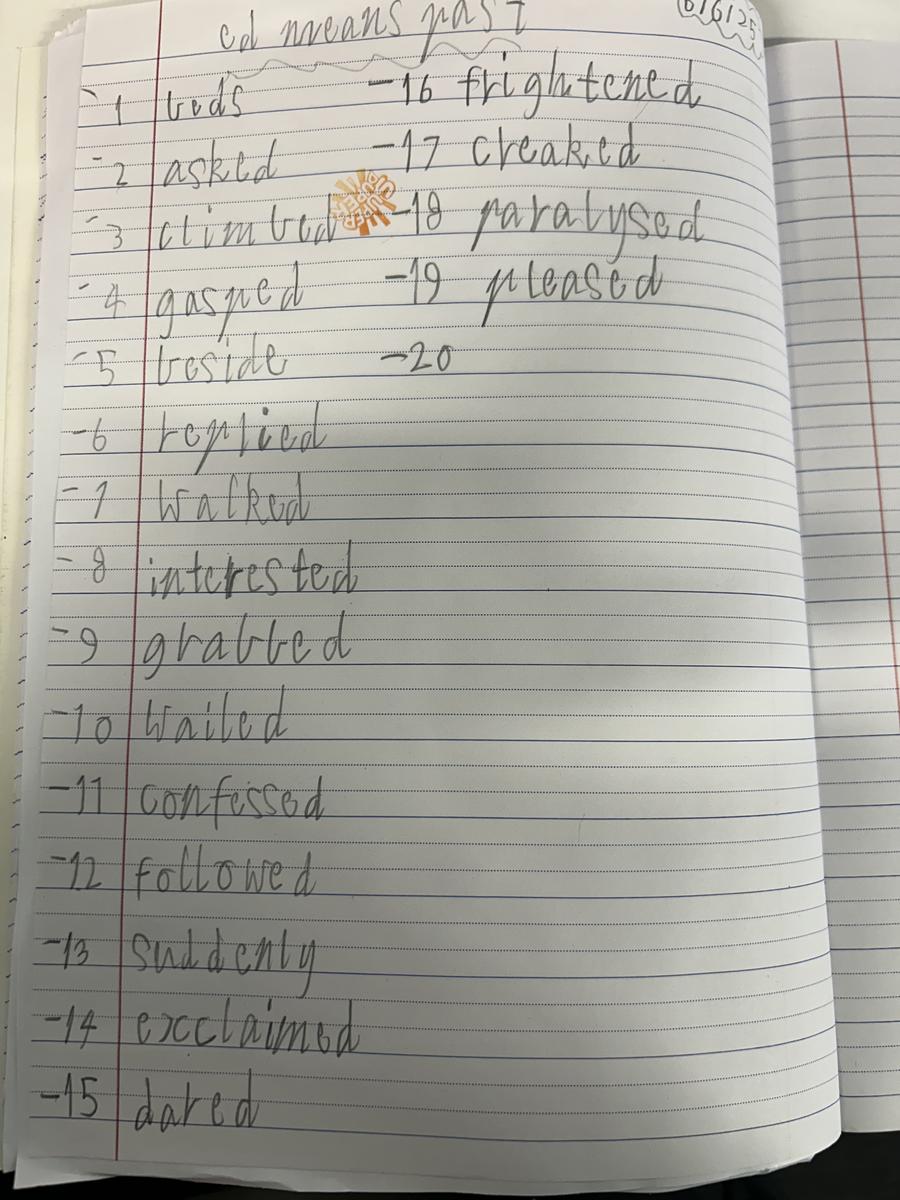 ed means past
6/6/25
-1 beds
-2 asked
-3 climbed
-4 gasped
-5 beside
-6 replied
-7 walked
-8 interested
-9 grabbed
-10 wailed
-11 confessed
-12 followed
-13 suddenly
-14 exclaimed
-15 dared
-16 frightened
-17 creaked
-18 paralysed
-19 pleased
-20
SUPER DUPER